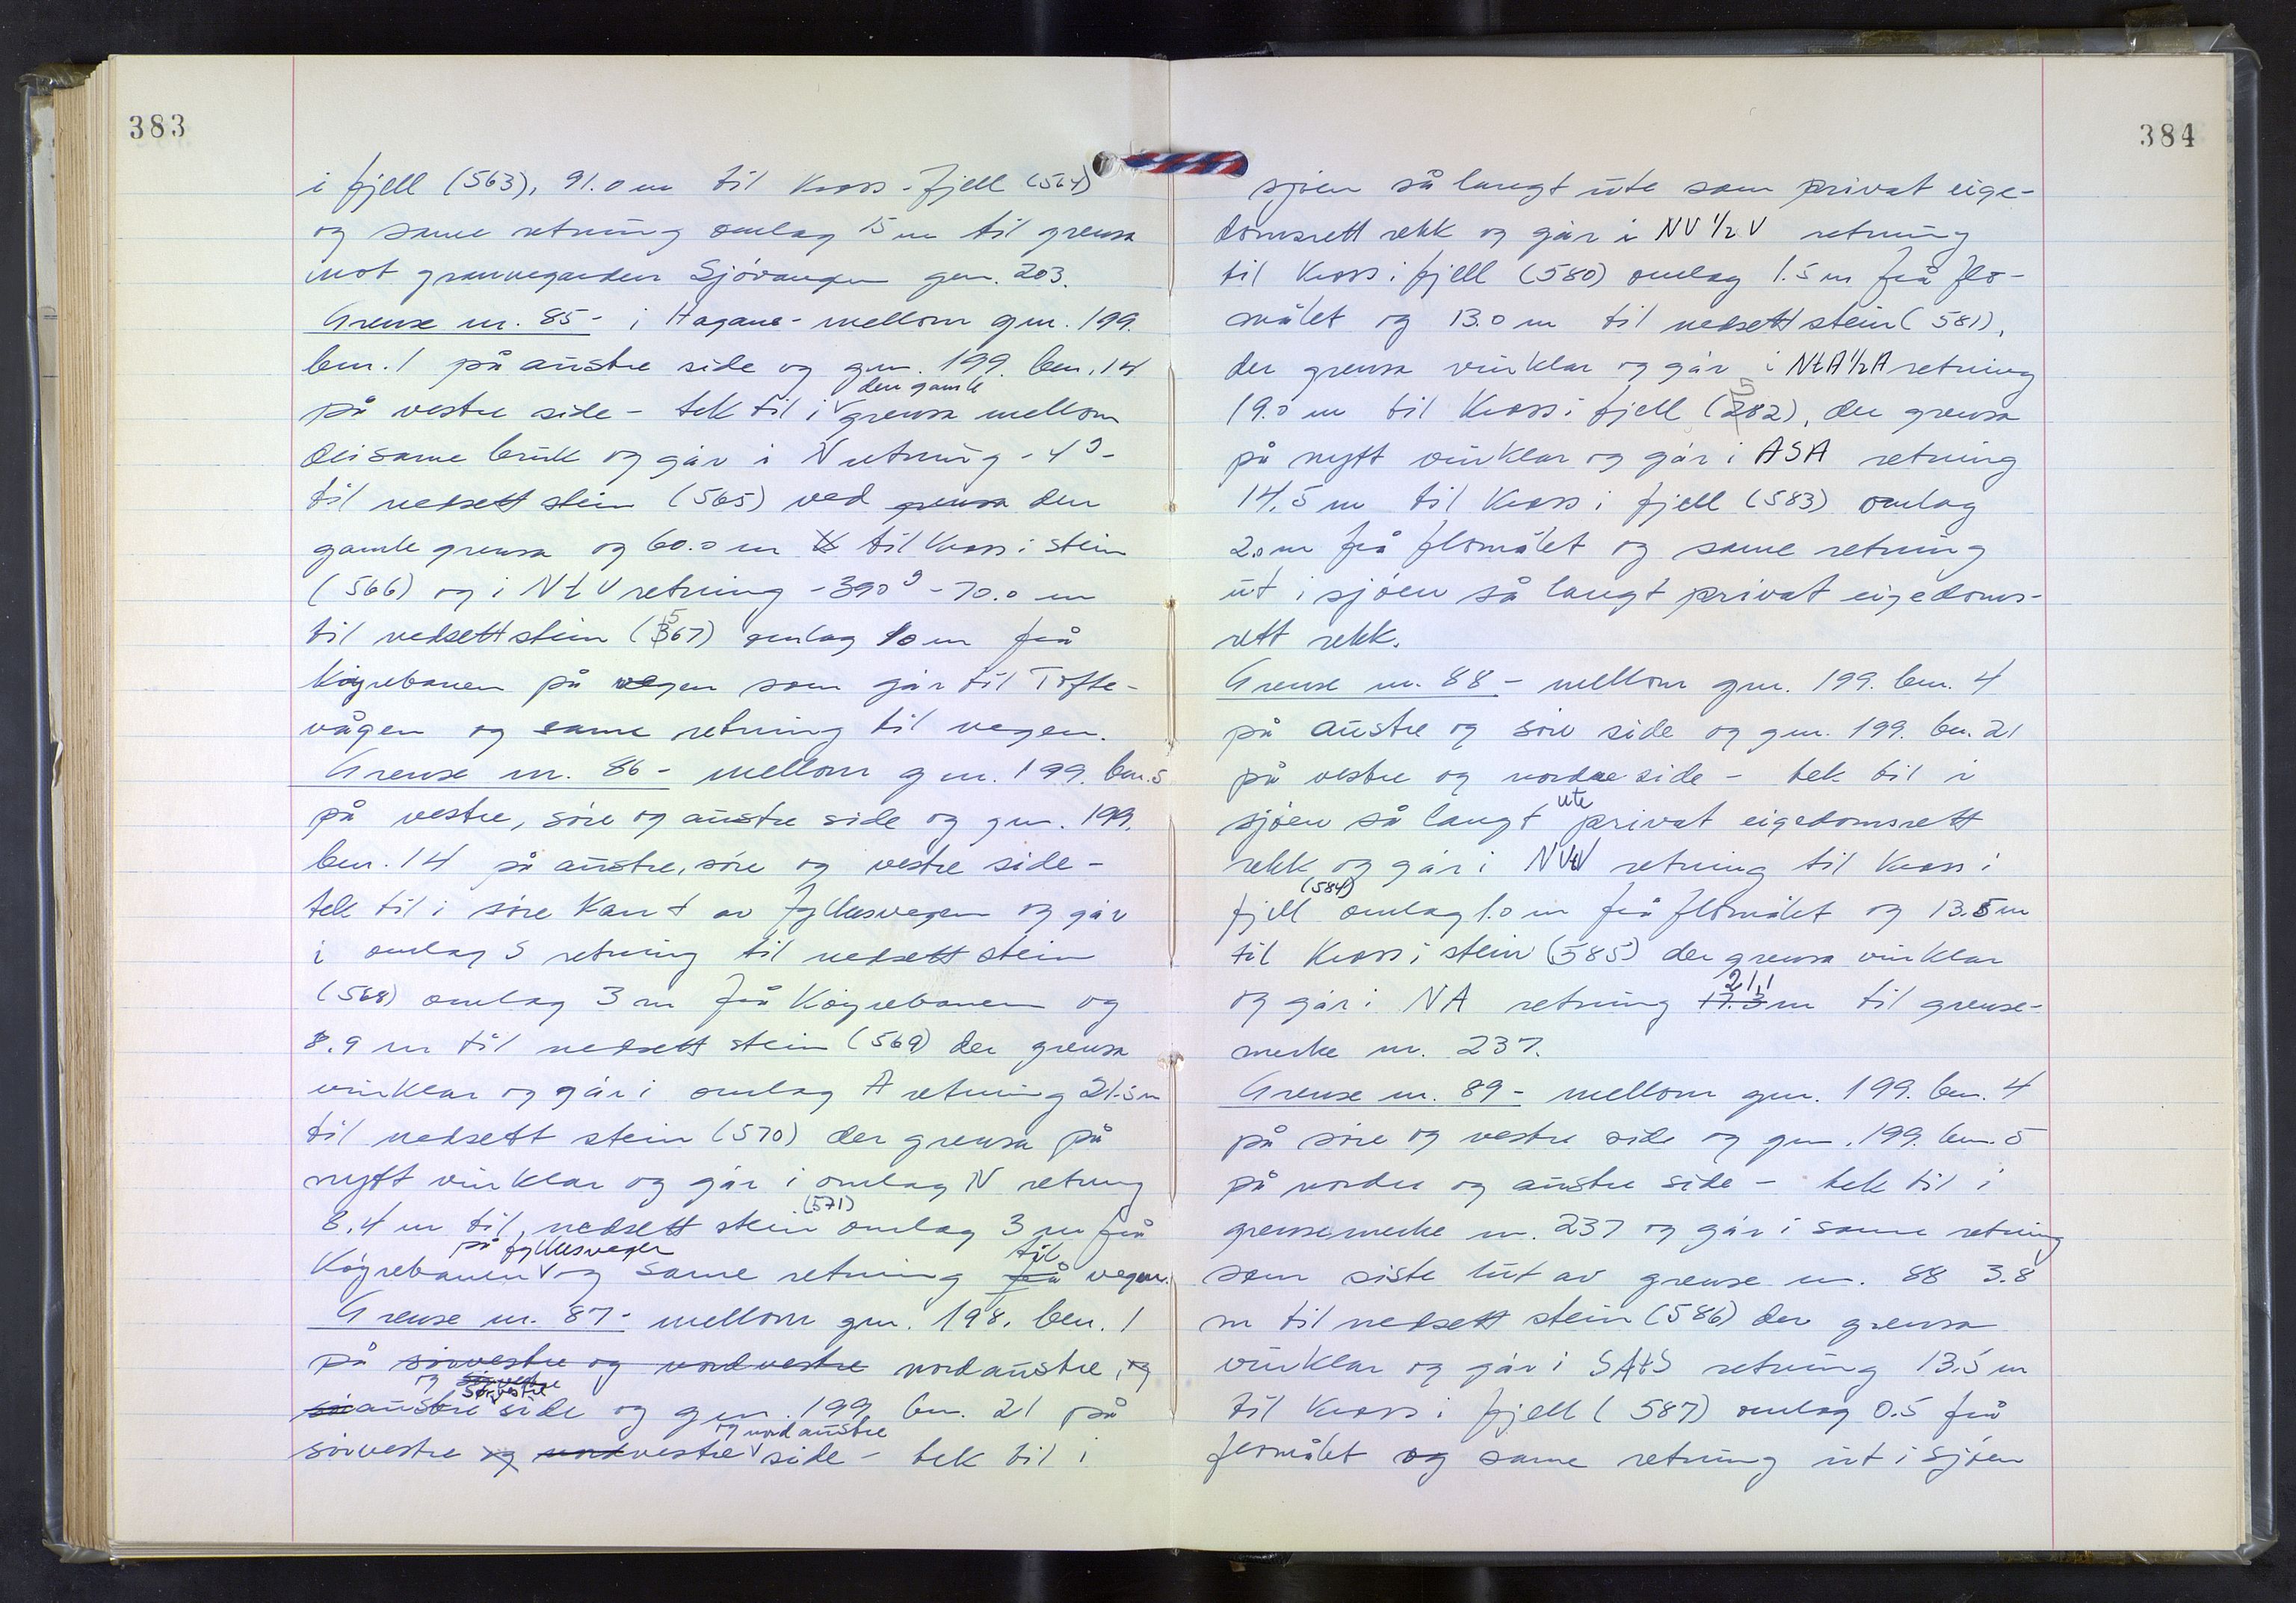 383
i fjell (563), 91.0 m til kross i fjell (564)
og same retning omlag 15 m til grensa
mot grannegarden Sjövangen gnr. 203.
Grense nr. 85 - i Hagane - mellom gnr. 199.
bnr. 1 på austre side og gnr. 199. bnr. 14
den gamle
på vestre side - tek til i grensa mellom
dei same bruk og går i N retning - 4 g -
til nedsett stein (565) ved grensa den
gamle grensa og 60.0 m til kross i stein
(566) og i NtV retning - 390 g - 70.0 m
til nedsett stein (567) omlag 10 m frå
Køyrebanen på vegen som går til Tofte-
vågen og same retning til vegen.
Grense nr. 86 - mellom gnr. 199. bnr. 5
på vestre, søre og austre side og gnr. 199.
bnr. 14 på austre, søre og vestre side -
tek til i søre kant av fylkesvegen og går
i omlag S retning til nedsett stein
(568) omlag 3 m frå Køyrebanen og
8.9 m til nedsett stein (569) der grensa
vinklar og går i omlag A retning 21.5 m
til nedsett stein (570) der grensa på
nytt vinklar og går i omlag N retning
(571)
8.4 m til nedsett stein omlag 3 m frå
på fylkesvegen til
Køyrebanen og same retning frå vegen.
Grense nr. 87 - mellom gnr. 198. bnr. 1
på sørvestre og nordvestre nordaustre, og
og sørvestre
søraustre side og gnr. 199 bnr. 21 på
og nordaustre
sørvestre og nordvestre side - tek til i
384
sjøen så langt ute som privat eige-
domsrett rekk og går i NV 1/2 V retning
til kross i fjell (580) omlag 1.5 m frå flo-
målet og 13.0 m til nedsett stein (581),
der grensa vinklar og går i NtA 1/2 A retning
19.0 m til kross i fjell (582), der grensa
på nytt vinklar og går i ASA retning
14.5 m til kross i fjell (583) omlag
2.0 m frå flomålet og same retning
ut i sjøen så langt privat eigedoms-
rett rekk.
Grense nr. 88 - mellom gnr. 199. bnr. 4
på austre og søre side og gnr. 199. bnr. 21
på vestre og nordre side - tek til i
ute
sjøen så langt privat eigedomsrett
rekk og går i NVtV retning til kross i
(584)
fjell omlag 1.0 m frå flomålet og 13.5 m
til kross i stein (585) der grensa vinklar
21,1
og går i NA retning 17.3 m til grense-
merke nr. 237.
Grense nr. 89 - mellom gnr. 199. bnr. 4
på søre og vestre side og gnr. 199. bnr. 5
på nordre og austre side - tek til i
grensemerke nr. 237 og går i same retning
som siste lut av grense nr. 88 3.8
m til nedsett stein (586) der grensa
vinklar og går i SAtS retning 13.5 m
til kross i fjell (587) omlag 0.5 frå
flomålet og same retning ut i sjøen